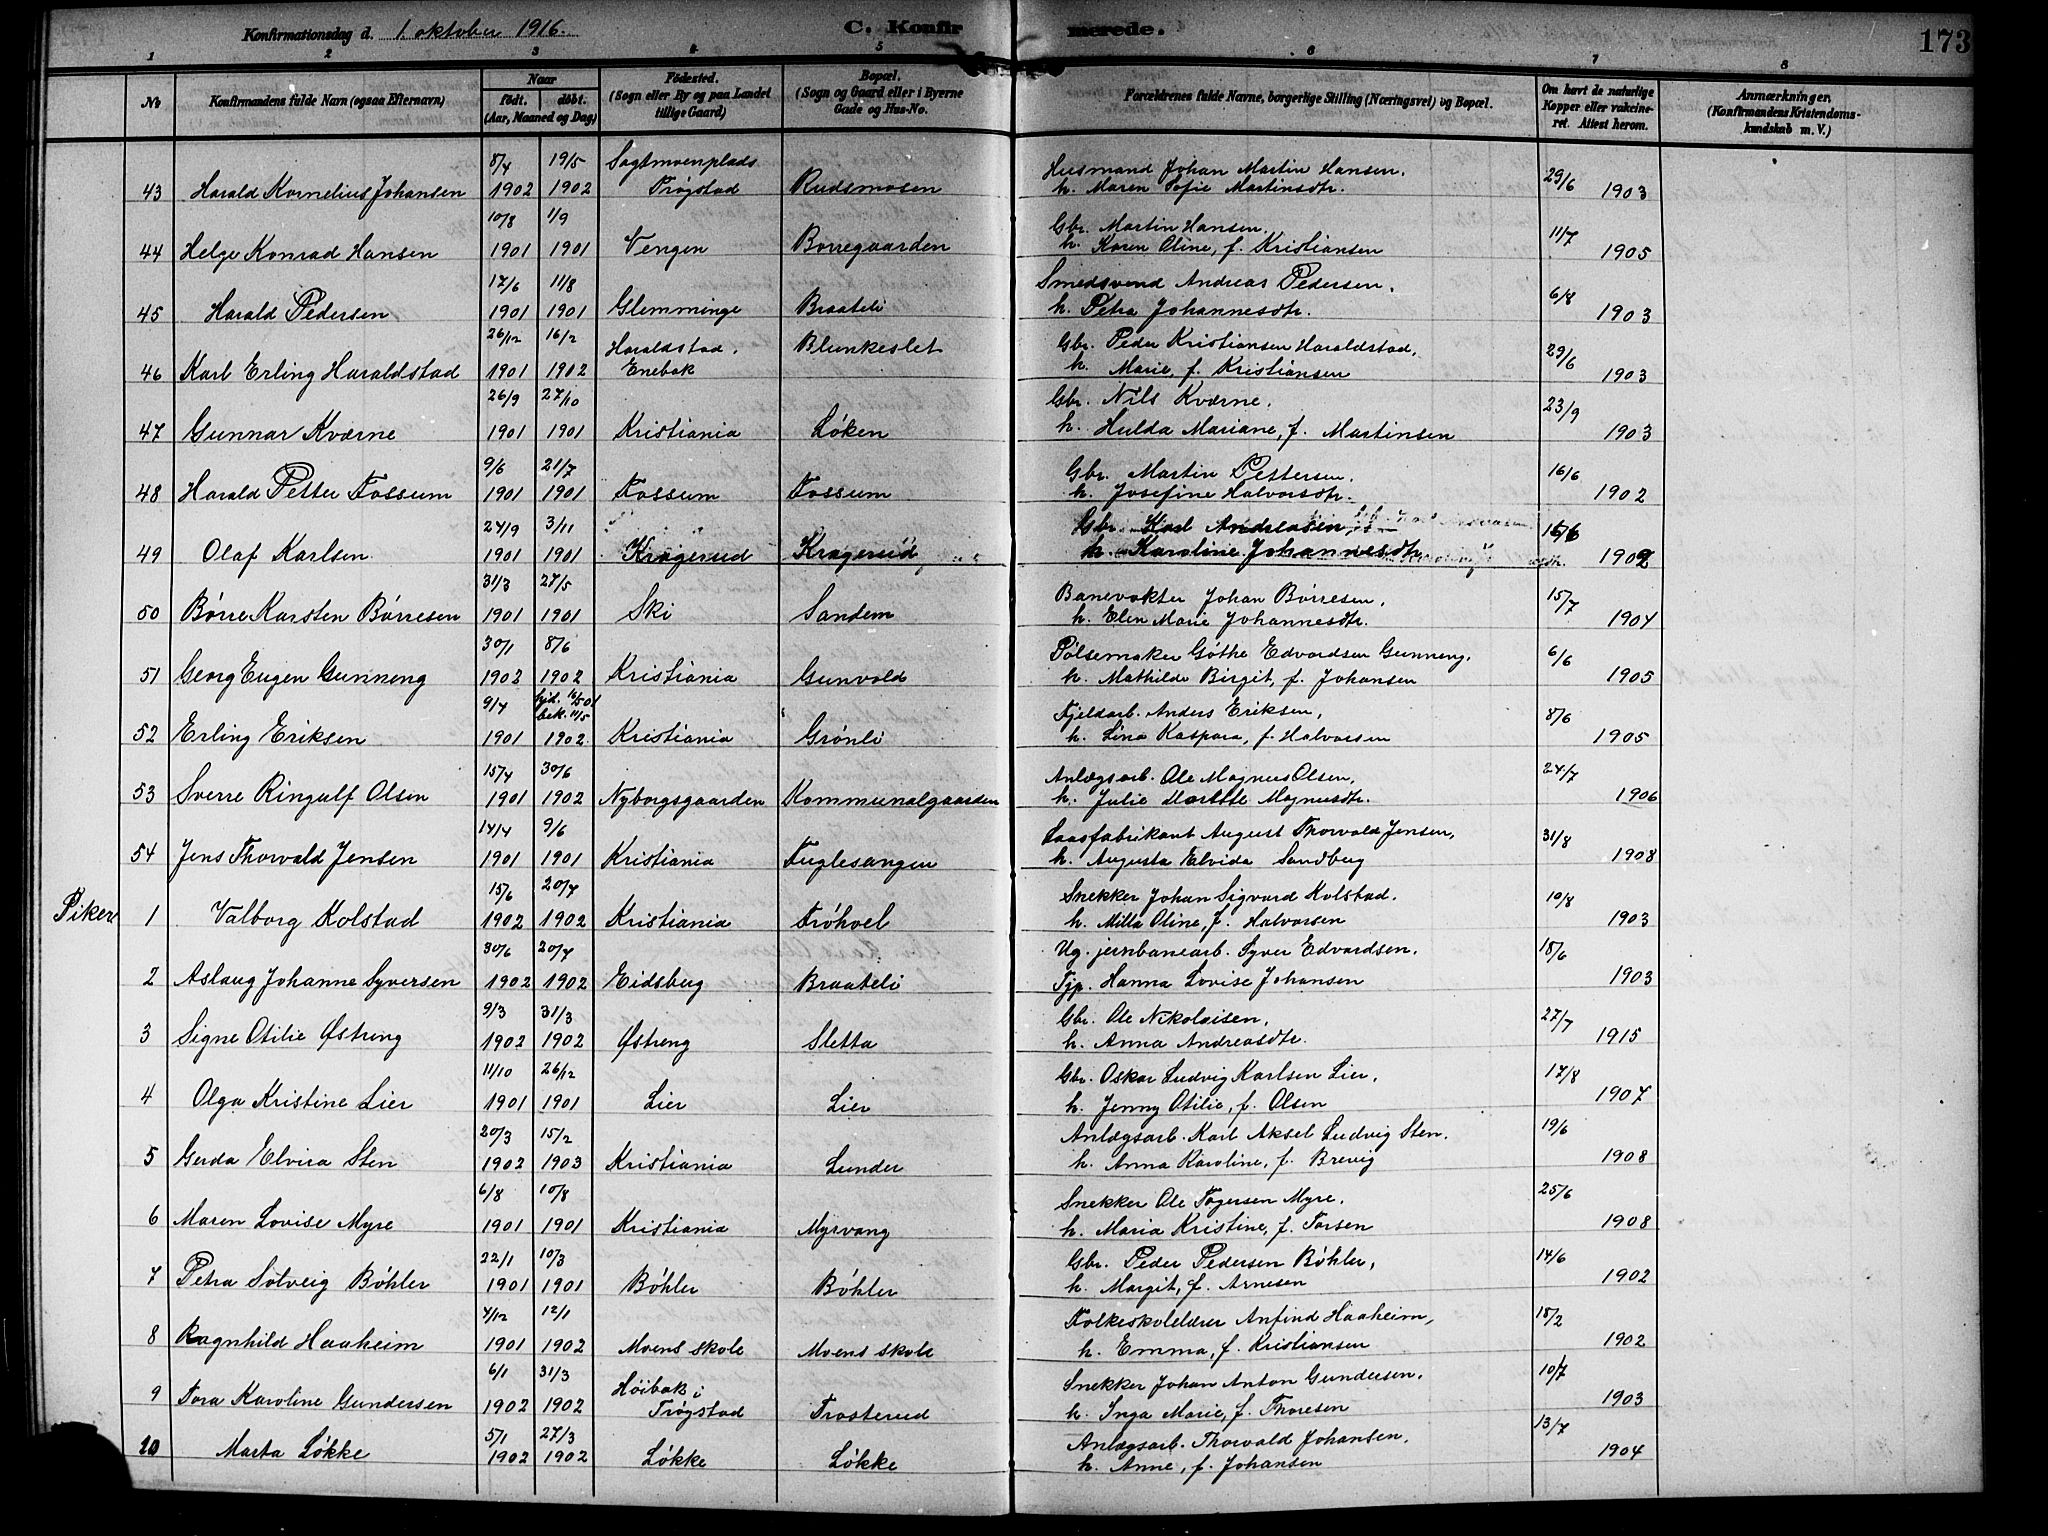 Konfirmationsdag d. 1. oktober 1916. C. Konfirmerede. 173
1 2 3 4 5 6 7 8
No Konfirmandens fulde Navn (ogsaa Efternavn) Naar født. døbt. (Aar, Maaned og Dag) Fødested. (Sogn eller By og paa Landet tillige Gaard) Bopæl. (Sogn og Gaard eller i Byerne Gade og Hus-No. Forældrenes fulde Navne, borgerlige Stilling (Næringsvei) og Bopæl. Om havt de naturlige Kopper eller vakcineret. Attest herom. Anmærkninger. (Konfirmandens Kristendomskundskab m. V.)
8/4 19/5 Sagtmoenplads Husmand Johan Martin Hansen.
43 Harald Kornelius Johansen 1902 1902 Trøgstad Rudsmosen h. Maren Sofie Martinsdtr. 29/6 1903
10/8 1/9 Gbr. Martin Hansen.
44 Helge Konrad Hansen 1901 1901 Vengen Borregaarden h. Karen Oline, f. Kristiansen 11/7 1905
17/6 11/8 Smedsvend Andreas Pedersen.
45 Harald Pedersen 1901 1901 Glemminge Braateli h. Petra Johannesdtr. 6/8 1903
26/12 16/2 Haraldstad. Blunkeslet Gbr. Peder Kristiansen Haraldstad,
46 Karl Erling Haraldstad 1901 1902 Enebak h. Marie, f. Kristiansen 29/6 1903
26/9 27/10 Gbr. Nils Kværne.
47 Gunnar Kværne 1901 1901 Kristiania Løken h. Hulda Mariane, f. Martinsen 23/9 1903
9/6 21/7 Gbr. Martin Pettersen.
48 Harald Petter Fossum 1901 1901 Fossum Fossum h. Josefine Halvorsdtr. 16/6 1902
24/9 3/11 Gbr. Karl Andreasen,
49 Olaf Karlsen 1901 1901 Kragerud Kragerud h. Karoline Johannesdtr. 16/6 1902
31/3 27/5 Banevokter Johan Børresen.
50 Børre Karsten Børresen 1901 1901 Ski Sandem h. Elen Marie Johannesdtr. 15/7 1904
30/1 8/6 Pølsemaker Gøthe Edvardsen Gunneng.
51 Georg Eugen Gunneng 1902 1902 Kristiania Gunvold h. Mathilde Birgit, f. Johansen 6/6 1905
9/4 hjd. 16/5 01 bek. 11/5 Fjeldarb. Anders Eriksen,
52 Erling Eriksen 1901 1902. Kristiania Grønli h. Lina Kaspara, f. Halvorsen 8/6 1905
15/4 30/6 Anlægsarb. Ole Magnus Olsen,
53 Sverre Ringulf Olsen 1901 1902 Nyborgsgaarden Kommunalgaarden h. Julie Martthe Magnusdtr. 24/7 1906
14/4 9/6 Laasfabrikant August Thorvald Jensen,
54 Jens Thorvald Jensen 1901 1901 Kristiania Fuglesangen h. Augusta Elvida Sandberg 31/8 1908
Piker
15/6 20/7 Snekker Johan Sigvard Kolstad.
1 Valborg Kolstad 1902 1902 Kristiania Frøhvel h. Milla Oline, f. Halvorsen 10/8 1903
30/6 20/7 Ug. jernbanearb. Syver Edvardsen.
2 Aslaug Johanne Syversen 1902 1902 Eidsberg Braateli Tjp. Hanna Lovise Johansen 18/6 1903
9/3 31/3 Gbr. Ole Nikolaisen.
3 Signe Otilie Østreng 1902 1902 Østreng Sletta h. Anna Andreasdtr. 27/7 1915
11/10 26/12 Gbr. Oskar Ludvig Karlsen Lier.
4 Olga Kristine Lier 1901 1901 Lier Lier h. Jenny Otilie, f. Olsen 17/8 1907
20/3 15/2 Anlægsarb. Karl Aksel Ludvig Sten.
5 Gerda Elvira Sten 1902 1903 Kristiania Lunder h. Anna Karoline, f. Brevig 19/6 1908
6/8 10/8 Snekker Ole Togersen Myre.
6 Maren Lovise Myre 1901 1901 Kristiania Myrvang h. Maria Kristine, f. Torsen 25/6 1908
22/1 10/3 Gbr. Peder Pedersen Bøhler,
7 Petra Solveig Bøhler 1901 1901 Bøhler Bøhler h. Margit, f. Arnesen 14/6 1902
4/12 12/1 Folkeskolelærer Anfind Haaheim,
8 Ragnhild Haaheim 1901 1902 Moens skole Moens skole h. Emma, f. Kristiansen 18/2 1902
6/1 31/3 Høibak i Snekker Johan Anton Gundersen.
9 Tora Karoline Gundersen 1902 1902 Trøgstad Trosterud h. Inga Marie, f. Thoresen 10/7 1903
5/1 27/3 Anlægsarb. Thorvald Johansen.
10 Marta Løkke 1902 1902 Løkke Løkke h. Anne, f. Johansen 13/7 1904